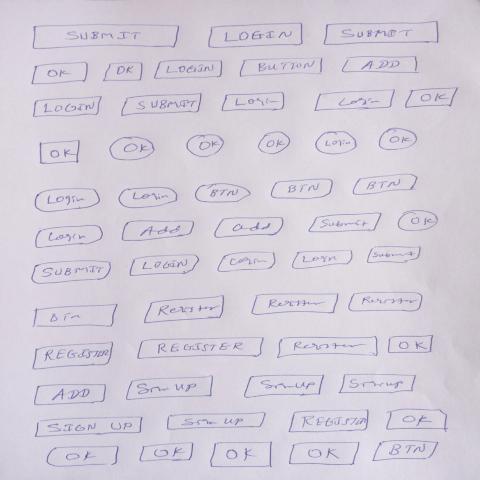 SUBMIT LOGIN SUBMIT
OK OK LOGIN BUTTON ADD
LOGIN SUBMIT Login Login OK
OK OK OK OK Login OK
Login Login BTN BTN BTN
Login Add add Submit OK
SUBMIT LOGIN Login Login Submit
Register Register Register
REGISTER REGISTER Register OK
ADD Sign Up Sign Up Sign up
SIGN UP Sign up REGISTER OK
OK OK OK OK BTN